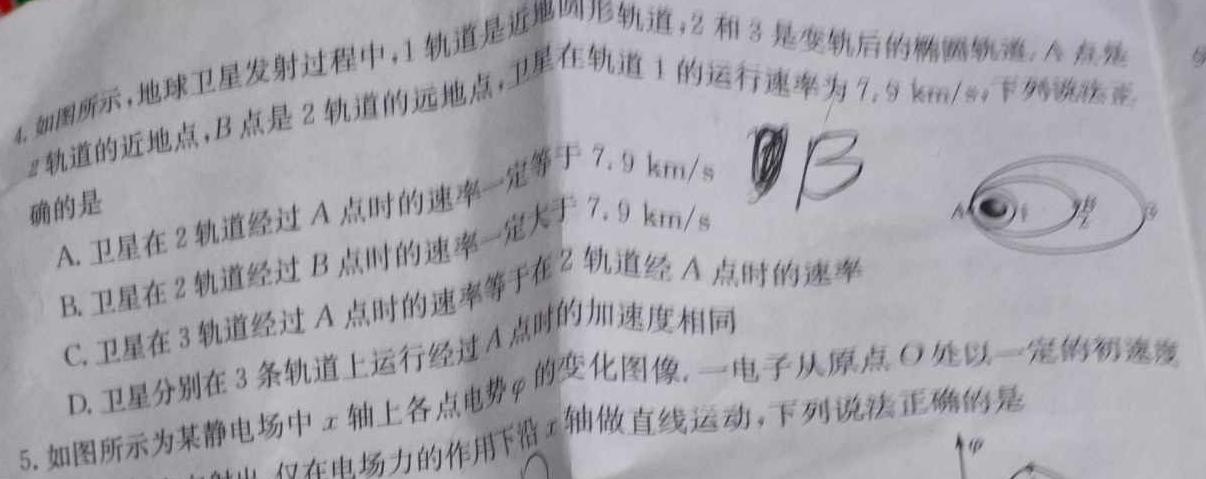 4. 如图所示,地球卫星发射过程中,1 轨道是近地圆形轨道,2 和 3 是变轨后的椭圆轨道,A 点是
2 轨道的近地点,B 点是 2 轨道的远地点,卫星在轨道 1 的运行速率为 7.9 km/s,下列说法正
确的是
A. 卫星在 2 轨道经过 A 点时的速率一定等于 7.9 km/s
B
B. 卫星在 2 轨道经过 B 点时的速率一定大于 7.9 km/s
A 1 B 2
C. 卫星在 3 轨道经过 A 点时的速率等于在 2 轨道经 A 点时的速率
D. 卫星分别在 3 条轨道上运行经过 A 点时的加速度相同
5. 如图所示为某静电场中 x 轴上各点电势 φ 的变化图像,一电子从原点 O 处以一定的初速度
仅在电场力的作用下沿 x 轴做直线运动,下列说法正确的是
φ